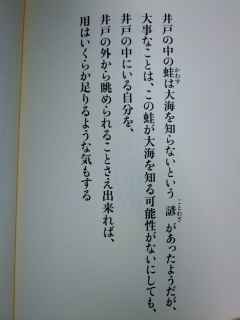 井戸の中の蛙は大海を知らないという諺があったようだが、
大事なことは、この蛙が大海を知る可能性がないにしても、
井戸の中にいる自分を、
井戸の外から眺められることさえ出来れば、
用はいくらか足りるような気もする